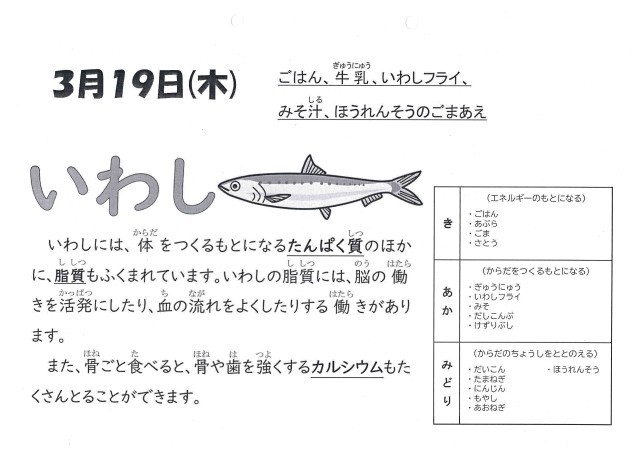 3月19日(木)
ごはん、牛乳、いわしフライ、
みそ汁、ほうれんそうのごまあえ
いわし
いわしには、体をつくるもとになるたんぱく質のほか
に、脂質もふくまれています。いわしの脂質には、脳の働
きを活発にしたり、血の流れをよくしたりする働きがあり
ます。
また、骨ごと食べると、骨や歯を強くするカルシウムもた
くさんとることができます。
き
(エネルギーのもとになる)
・ごはん
・あぶら
・ごま
・さとう
あか
(からだをつくるもとになる)
・ぎゅうにゅう
・いわしフライ
・みそ
・だしこんぶ
・けずりぶし
みどり
(からだのちょうしをととのえる)
・だいこん ・ほうれんそう
・たまねぎ
・にんじん
・もやし
・あおねぎ